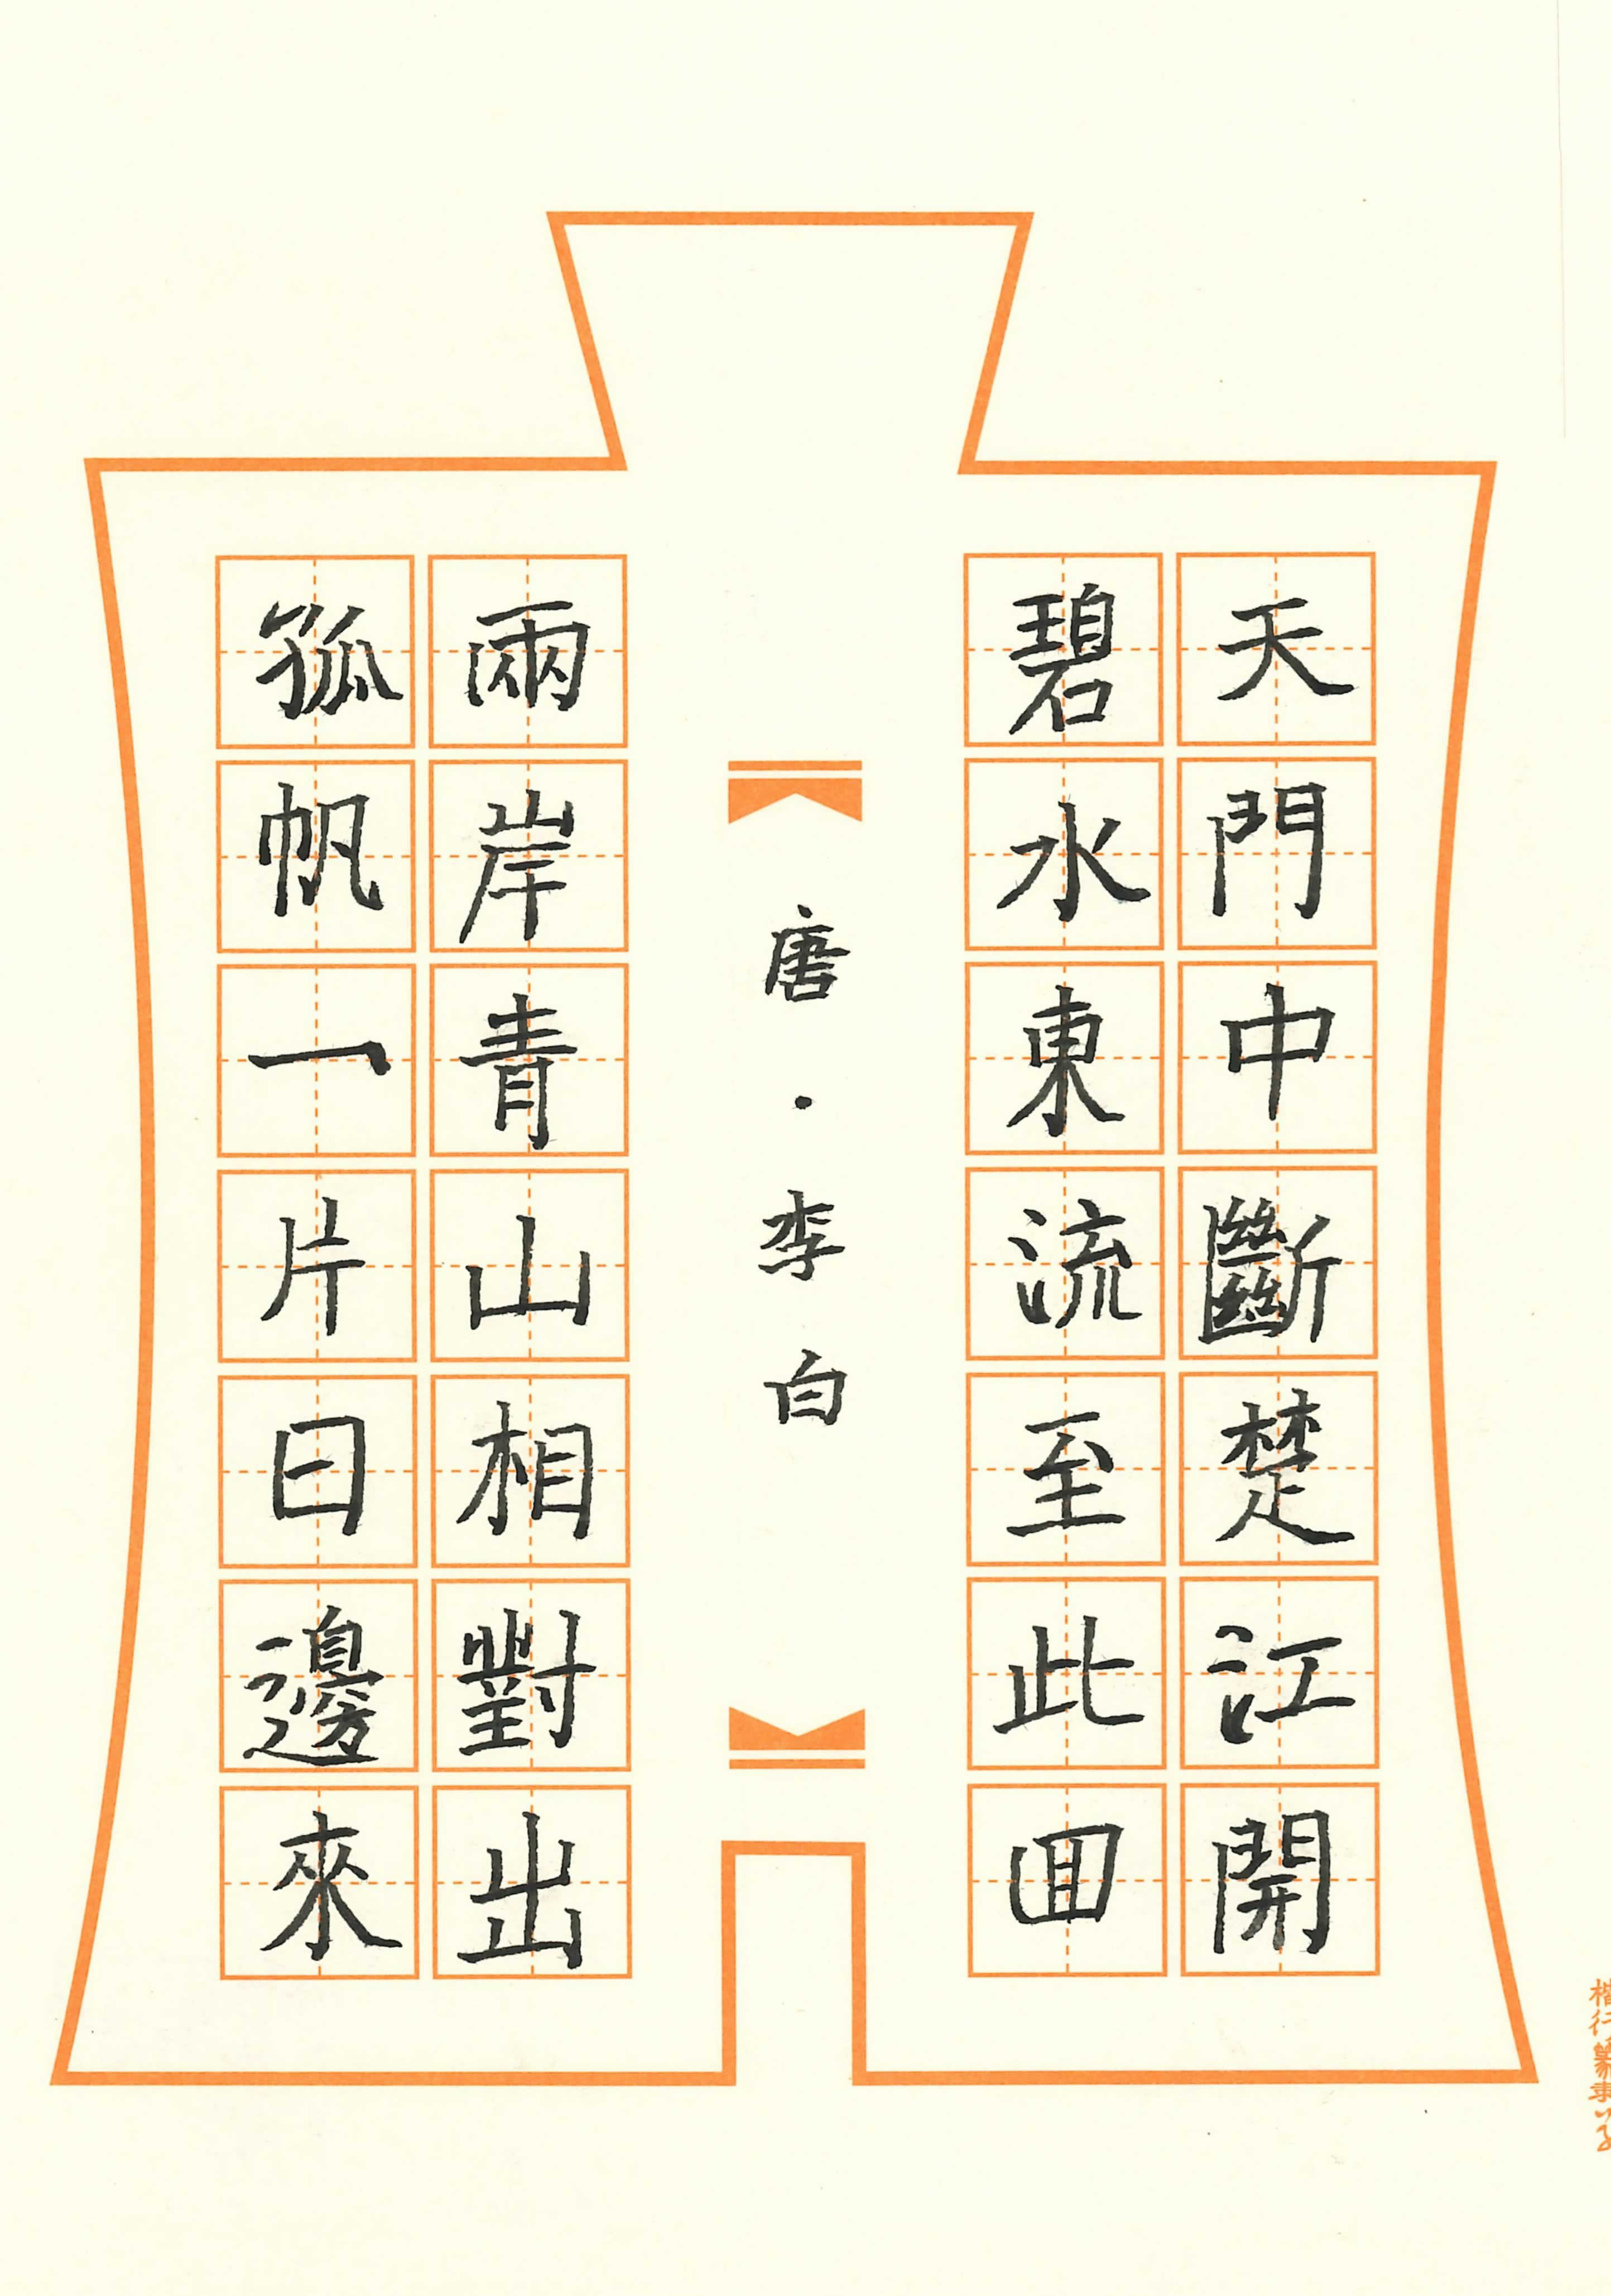 天門中斷楚江開
碧水東流至此囬
唐·李白
兩岸青山相對出
孤帆一片日邊來